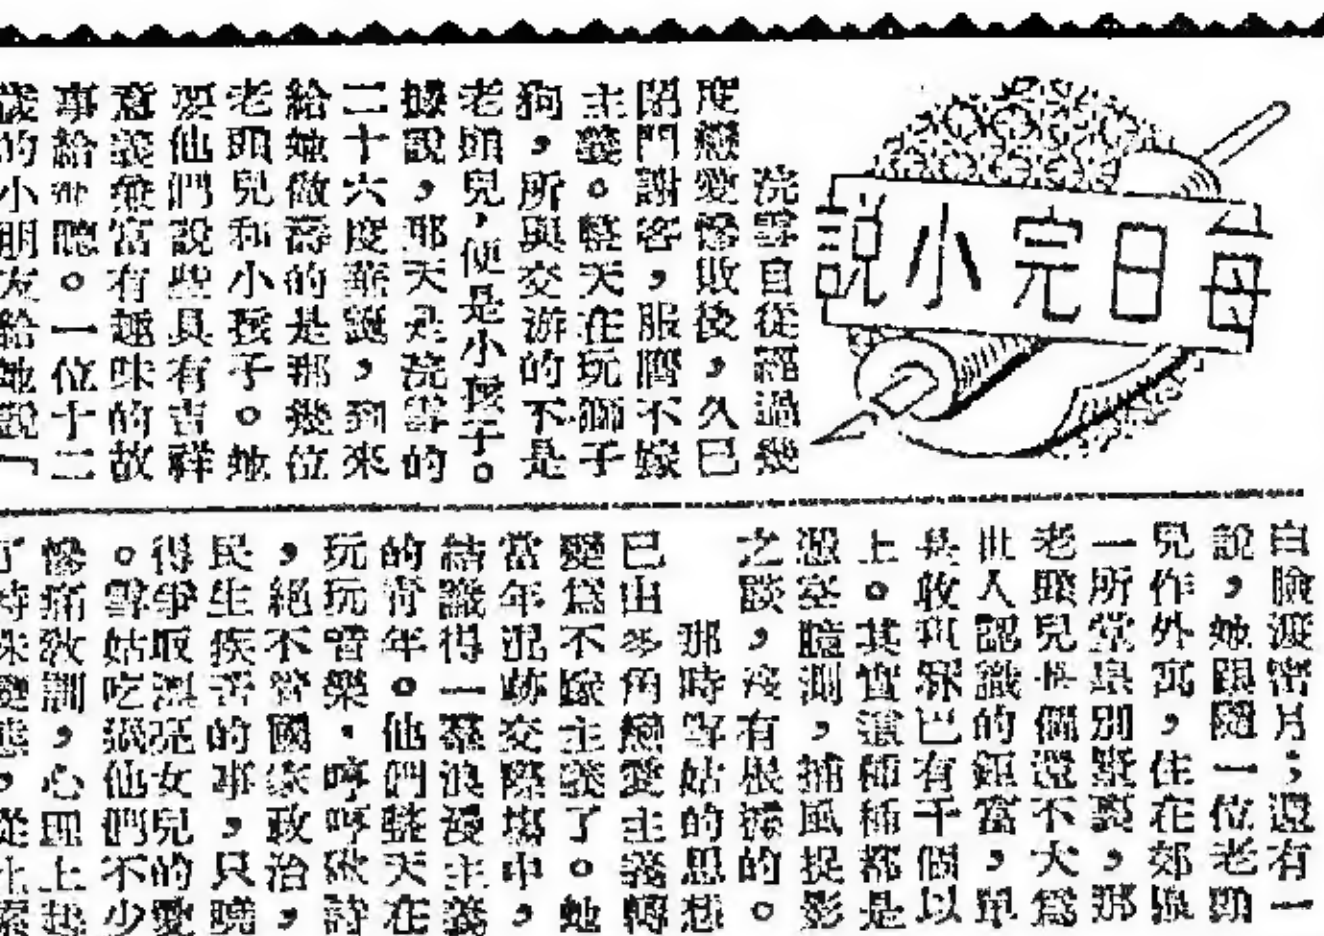 每日完小說
浣雪自從經過幾
度戀愛慘敗後，久已
閉門謝客，服膺不嫁
主義。整天在玩獅子
狗，所與交游的不是
老頭兒，便是小孩子。
據說，那天是浣雪的
二十六度華誕，到來
給她做壽的是那幾位
老頭兒和小孩子。她
要他們說些具有吉祥
意義兼富有趣味的故
事給她聽。一位十二
歲的小朋友給她說「
白臉渡密月；還有一
說，她跟隨一位老頭
兒作外寓，住在郊外
一所堂皇別墅裏，那
老頭兒個還不大爲
世人認識的鉅富，單
其收已有千個以
上。其實這種種都是
憑空臆測，捕風捉影
之談，沒有根據的。
那時雪姑的思想
已由多角戀愛主義轉
變爲不嫁主義了。她
當年混跡交際場中，
結識得一羣浪漫主義
的青年。他們整天在
玩玩音樂，哼哼做詩
，絕不管國家政治，
民生疾苦的事，只曉
得爭取漂亮女兒的愛
。雪姑吃他們不少
慘痛教訓，心上起
了特殊變態，從